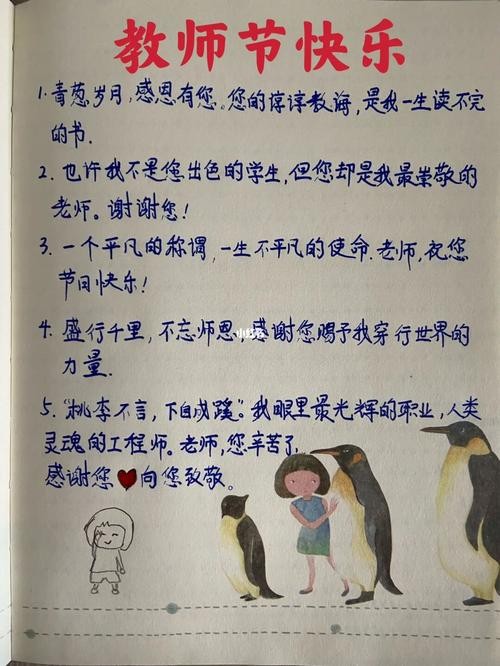 教师节快乐
1. 青葱岁月，感恩有您。您的谆谆教诲，是我一生读不完
的书.
2. 也许我不是您出色的学生，但您却是我最崇敬的
老师。谢谢您！
3. 一个平凡的称谓，一生不平凡的使命.老师，祝您
节日快乐！
4. 盛行千里，不忘师恩，感谢您赐予我穿行世界的
力量.
5. “桃李不言，下自成蹊”。我眼里最光辉的职业，人类
灵魂的工程师。老师，您辛苦了.
感谢您❤向您致敬。